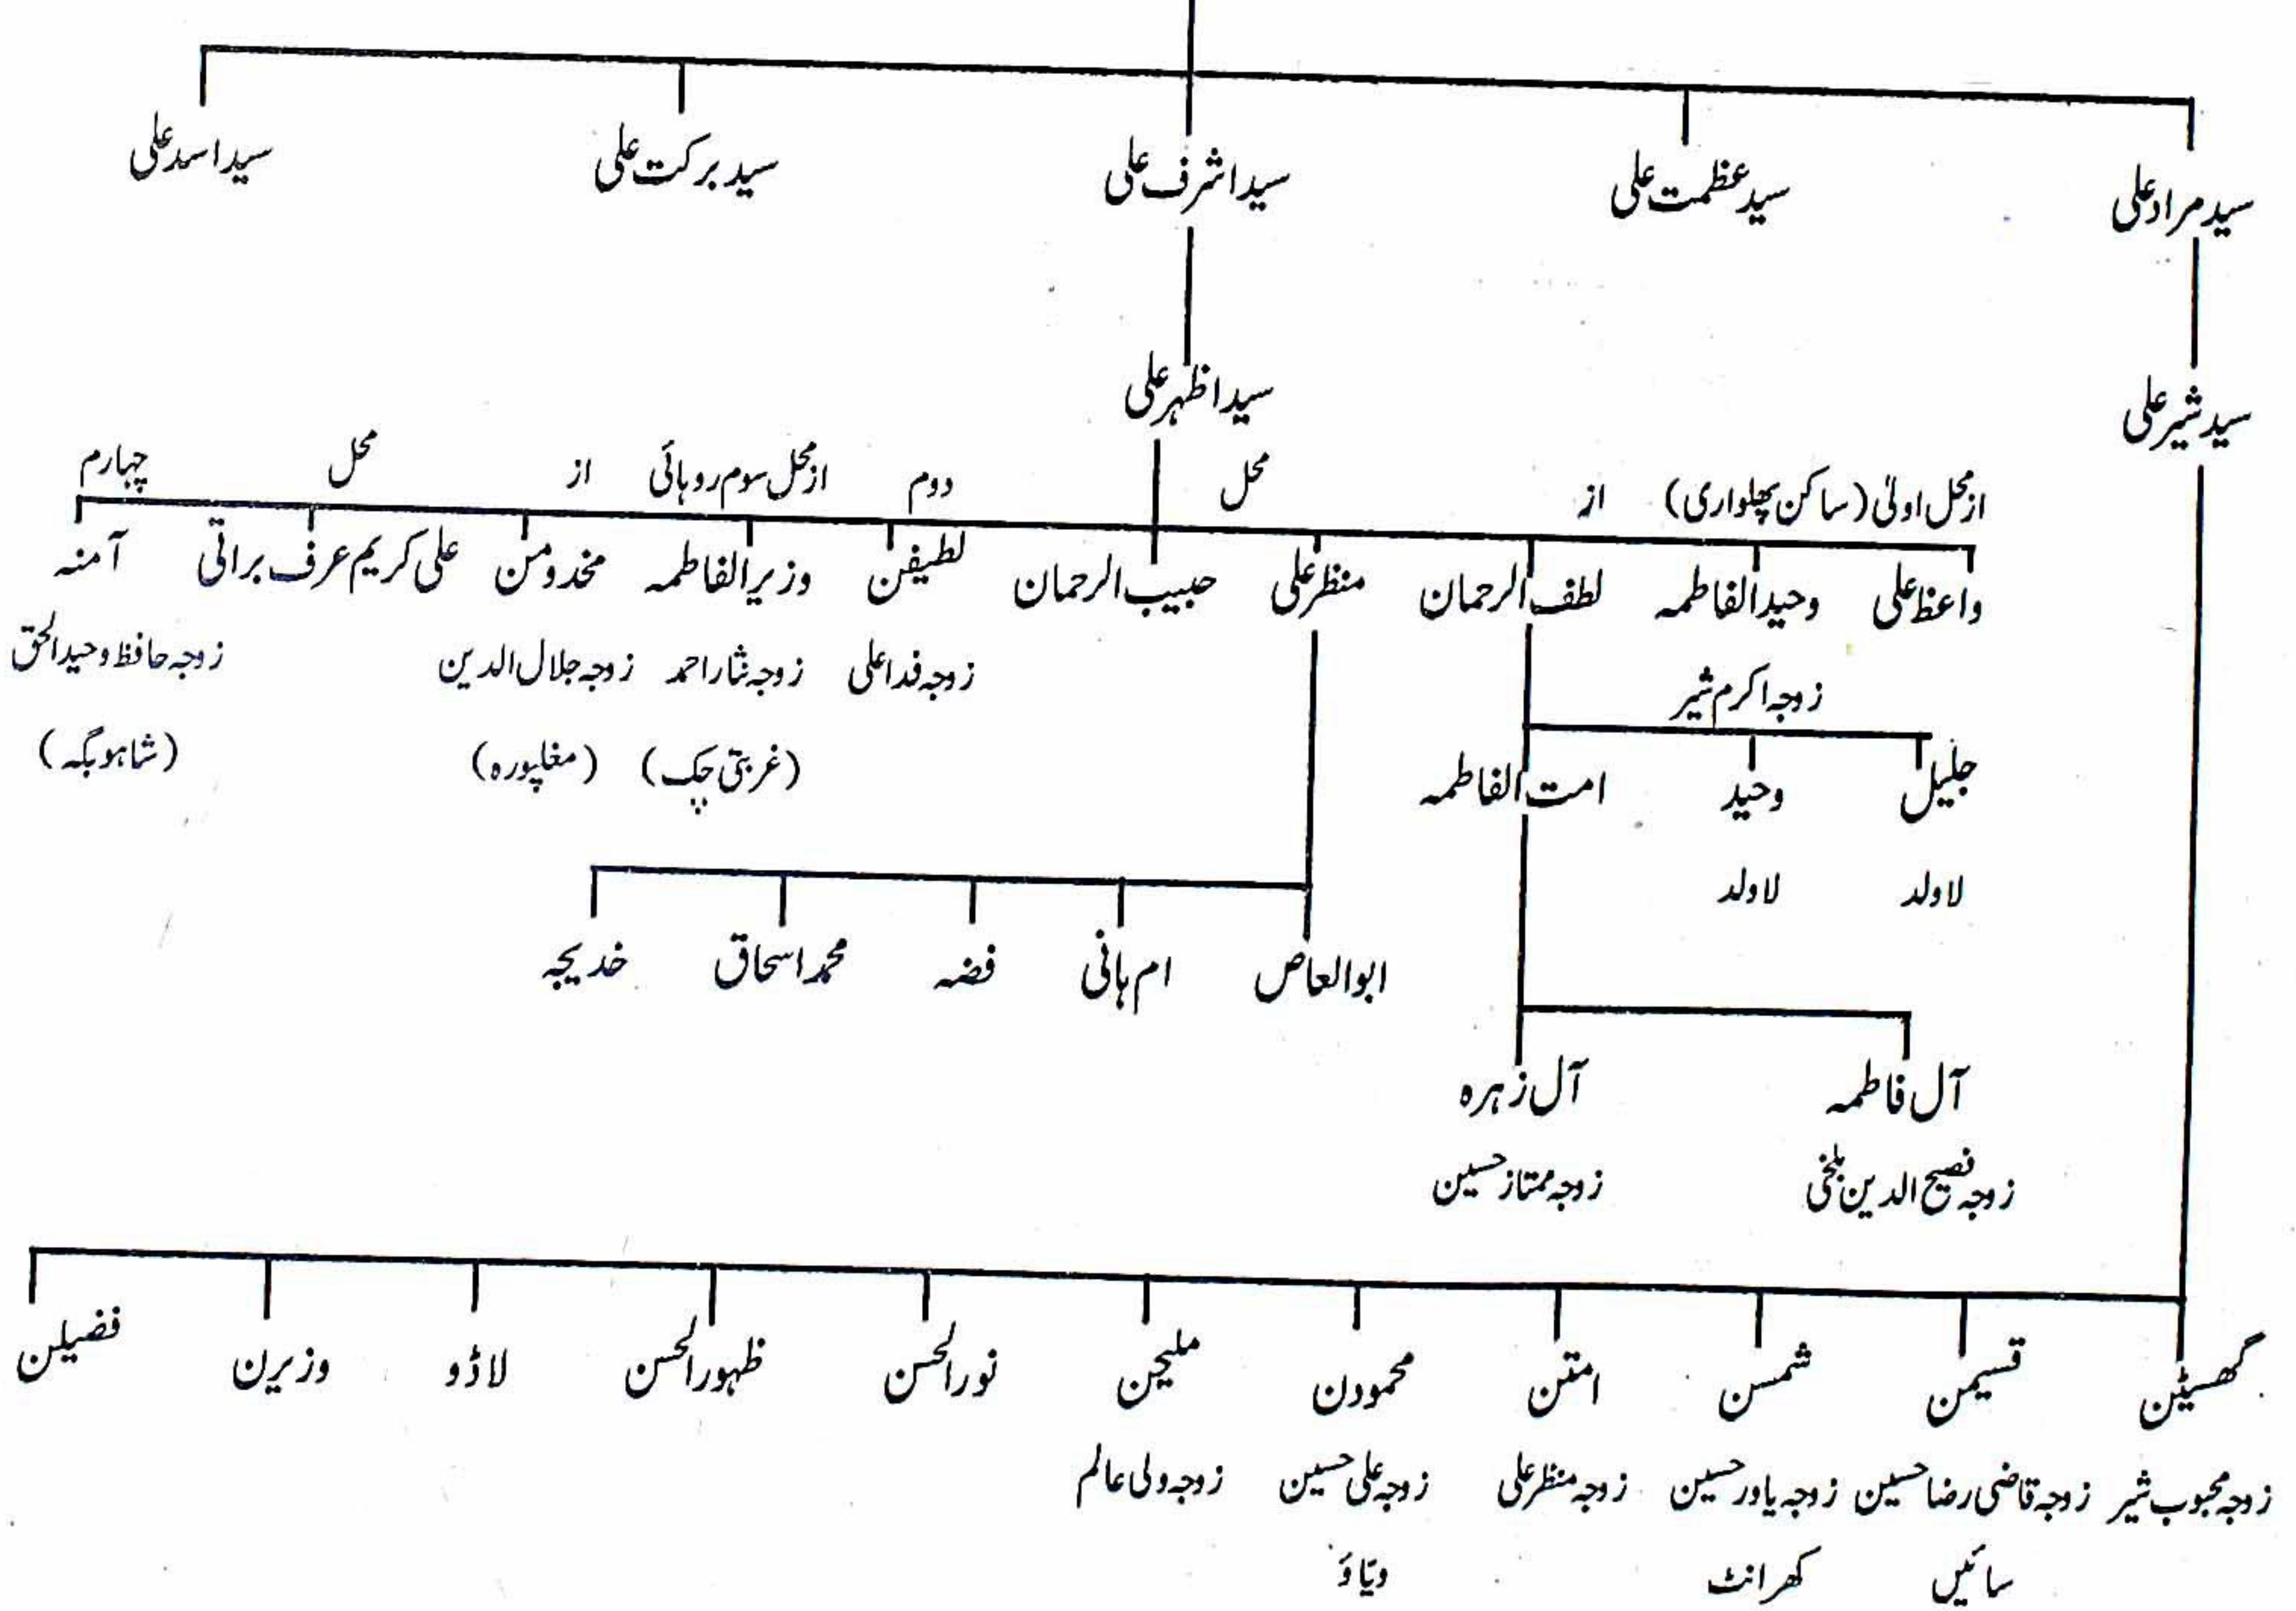 سید مراد علی سید عظمت علی سید اشرف علی سید برکت علی سید اسد علی
سید شیر علی سید اظہر علی
از محل اولیٰ (ساکن پھلواری) از محل دوم از محل سوم روہائی از محل چہارم
واعظ علی وحید الفاطمہ لطف الرحمان منظر علی حبیب الرحمان لطیفن وزیر الفاطمہ مخدومن علی کریم عرف براتی آمنہ
زوجہ اکرم شیر زوجہ فدا علی زوجہ نثار احمد زوجہ جلال الدین زوجہ حافظ وحید الحق
(غربتی چک) (مغلپورہ) (شاہو بگہ)
جلیل وحید امت الفاطمہ
لاولد لاولد
ابوالعاص ام ہانی فضہ محمد اسحاق خدیجہ
آل فاطمہ آل زہرہ
زوجہ فصیح الدین بلخی زوجہ ممتاز حسین
گھسیٹن قسیمن شمسن امتن محمودن ملیحن نور الحسن ظہور الحسن لاڈو وزیرن فضیلن
زوجہ محبوب شیر زوجہ قاضی رضا حسین زوجہ یاور حسین زوجہ منظر علی زوجہ علی حسین زوجہ ولی عالم
سائیں کھرانٹ ویاؤ